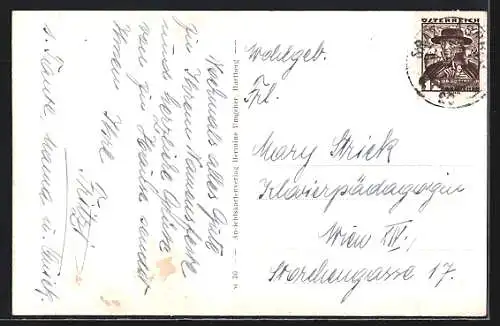 Nochmals alles Gute
zu Ihrem Namensfeste
und herzliche Grüße
von zu Hause sendet
Ihnen Ihre
Mitzi
s. Tante, Mama u.
w 30 — Ansichtskartenverlag Hermine Umgeher, Hartberg
Wohlgeb.
Frl.
Mary Strick
Klavierpädagogin
Wien IV,
Storchengasse 17.
ÖSTERREICH
12